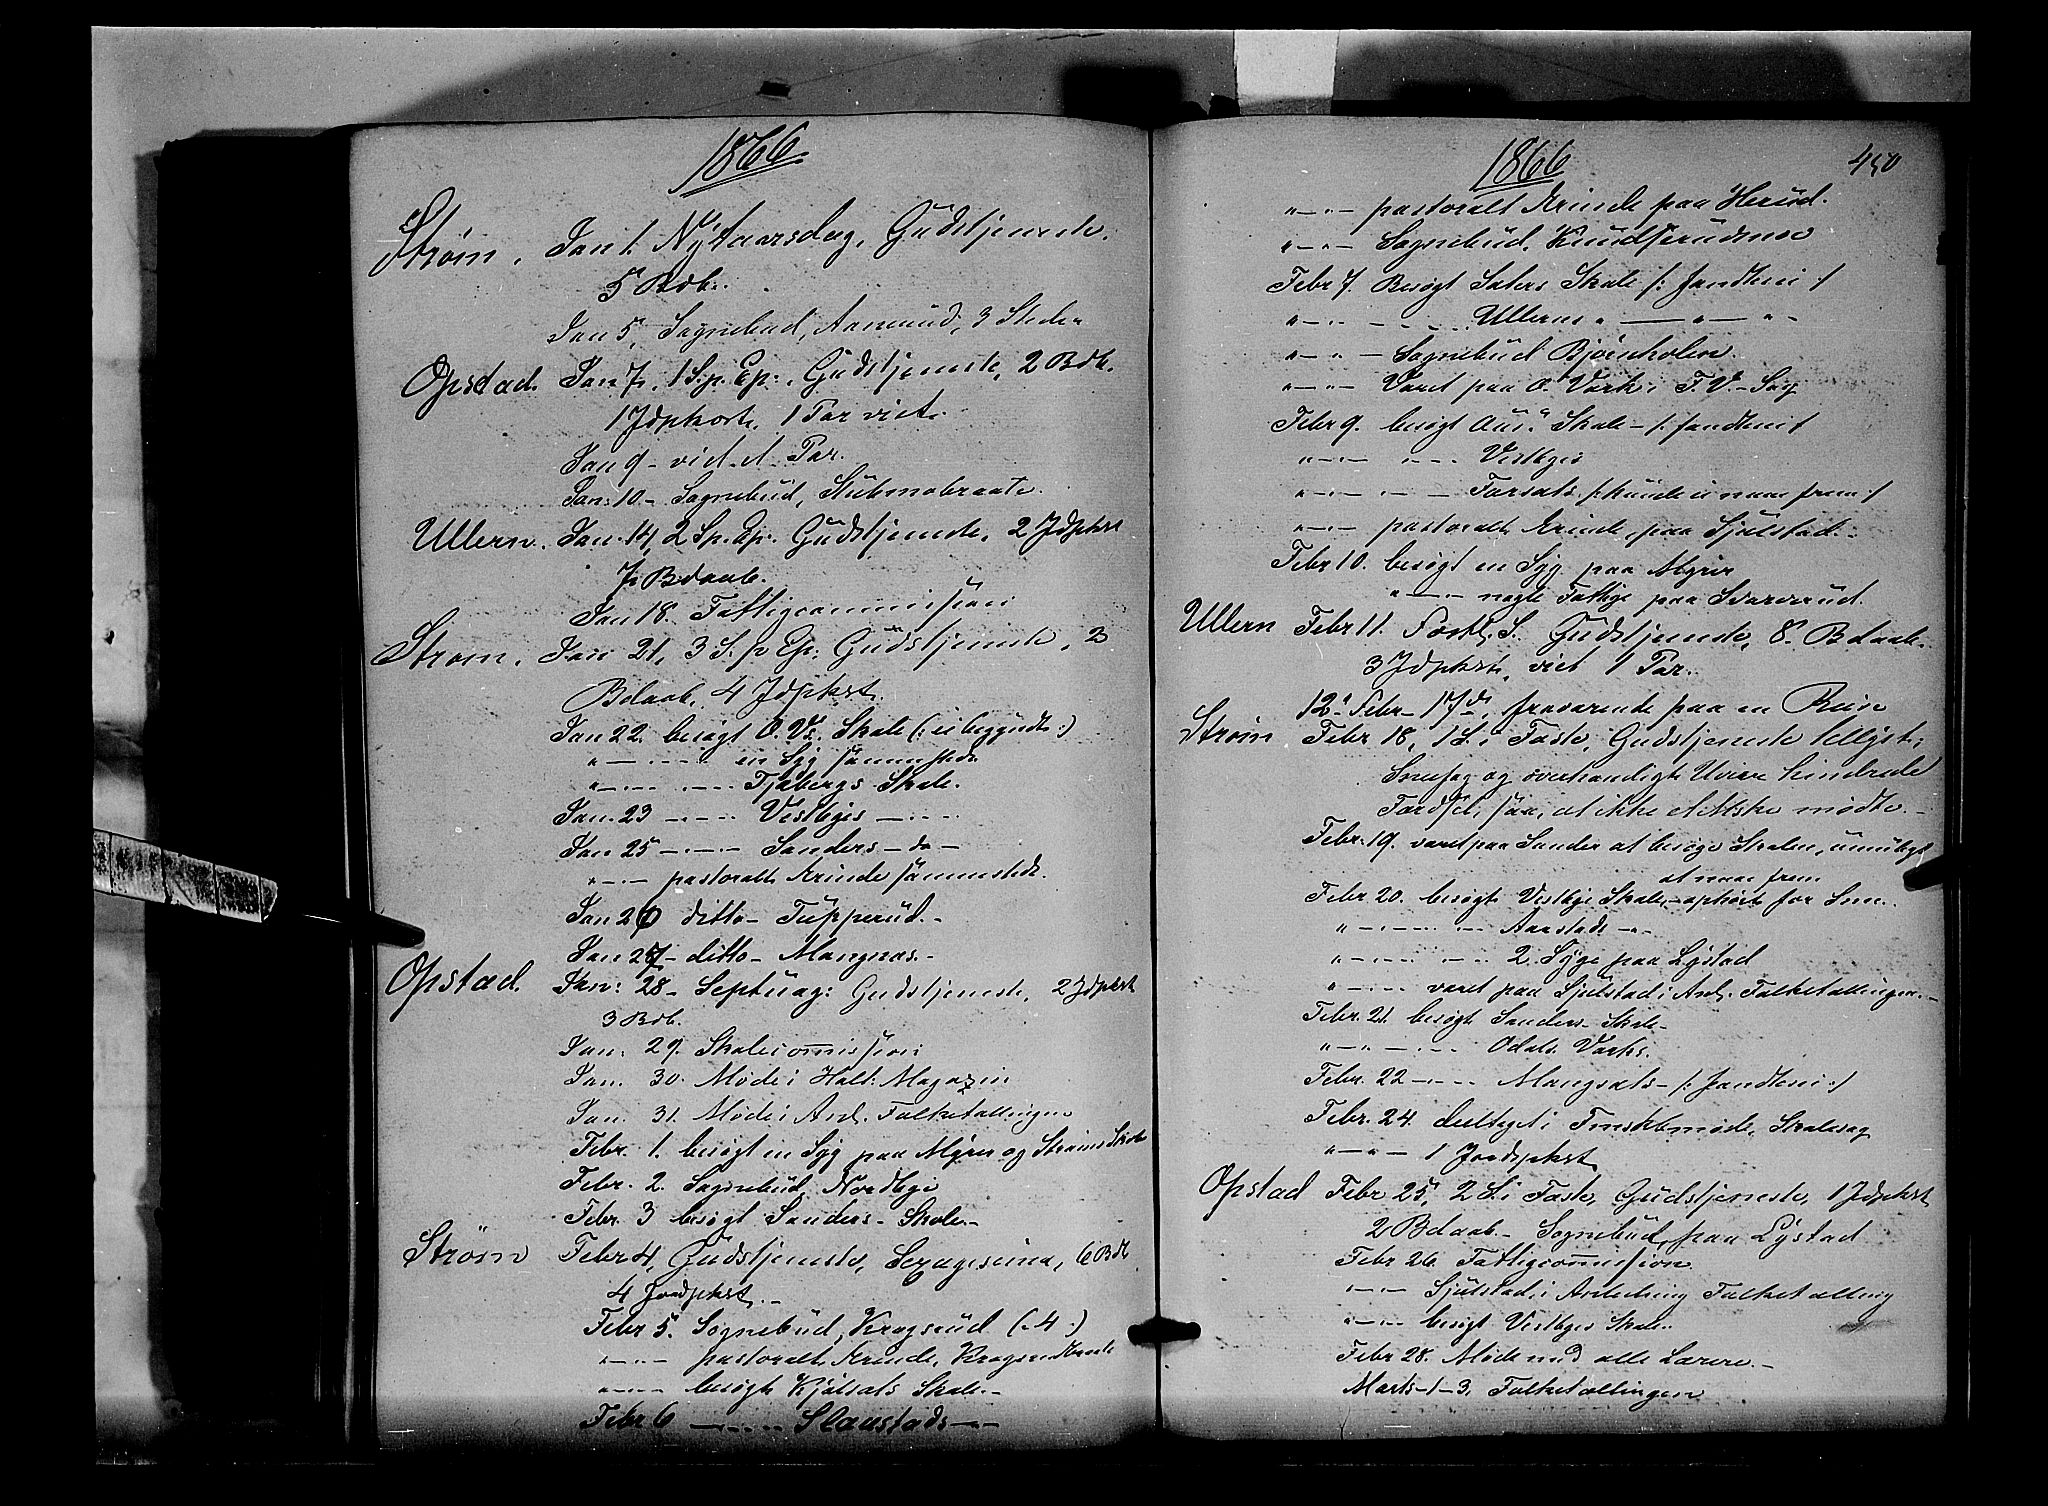 1866
Strøm. Jan 1. Nytaarsdag, Gudstjeneste.
5 Bdb.
Jan 5, Sognebud, Aamerud, 3 Steder
Opstad. Jan 7, 1 S. p. Ep., Gudstjeneste, 2 Bdb.
1 Jdpkast, 1 Par viet.
Jan 9 - vid. 1 Par.
Jan: 10 - Sognebud, Stubmobraate.
Ullern. Jan. 14, 2 Sp. Ep. Gudstjeneste, 2 Jdpkst
7 Bdaab.
Jan 18. Fattigcommission
Strøm. Jan 21, 3 S. p Ep: Gudstjeneste, 2
Bdaab, 4 Jdpkst.
Jan 22. besøgt O. Vs. Skole (: ei begyndt :)
" — en Syg sammesteds
" — Fjøbergs Skole.
Jan. 23 — Vestbyes —
Jan 25 — Sanders — do —
" — pastoralt Ærinde sammesteds.
Jan 26 ditto - Tupperud. -
Jan 27 - ditto - Mangnæs. -
Opstad. Jan: 28 - Septuag: Gudstjeneste, 2 Jdpkst
3 Bdb.
Jan: 29. Skolecommission
Jan. 30. Møde i Kalt: Magazin
Jan. 31. Møde i Anl. Folketællingen
Febr. 1. besøgt en Syg paa Myrer og Strøms Skole
Febr. 2. Sognebud, Nordbye
Febr. 3 besøgt Sanders - Skole -
Strøm Febr 4, Gudstjeneste, Sexagesima, 6 Bdb
4 Jordpkst. -
Febr 5. Sognebud, Kragserud (. 4 .)
" — pastoralt Ærinde, Kragserud
" — besøgt Kjølsats Skole -
Febr 6 — Slaastads —
1866
450
" — pastoralt Ærinde paa Herud.
" — Sognebud, Knudserudmoe
Febr 7. Besøgt Saters Skole /: Jandleni :/
" — Ullerns " — " — " —
" — Sognebud Bjørnholen.
" — Været paa O. Værk i F. V. - Sag
Febr 9. besøgt Aus: Skole - /: Jandleni :/
" — Vestbyes
" — Forsats /: kunde ei naae frem :/
" — pastoralt Ærinde, paa Sjulstad. -
Febr 10. besøgt en Syg paa Myrer
" — nogle Fattige paa Svarverud.
Ullern Febr 11. Fastl. S. Gudstjeneste, 8. Bdaab.
3 Jdpkst, viet 1 Par.
12te Febr - 17de, fraværende paa en Reise
Strøm Febr 18, 1 S. i Faste, Gudstjeneste tillyst;
Snefog og overhændigt Uveir hindrede
Færdsel, saa, at ikke et Mske mødte. -
Febr. 19. været paa Sander at besøge Skolen, umuligt
at naae frem
Febr 20. besøgt Vestbye Skole, - ophørt for Snee.
" — Aarstads —
" — 2 Syge paa Lystad
" — været paa Sjulstad i Anl. Folketællingen. -
Febr. 21. besøgt Sanders Skole -
" — Odals Værks.
Febr. 22 — Mangsats - /: Jandleni :/
Febr. 24. deeltaget i Formskabsmøde, Skolesag
" — 1 Jordpkst
Opstad Febr 25, 2 S. i Faste, Gudstjeneste, 1 Jdpkst
2 Bdaab - Sognebud paa Lystad
Febr 26. Fattigcommission
" — Sjulstad i Anledning Folketælling
" — besøgt Vestbyes Skole.
Febr 28. Møde med alle Lærere. -
Marts - 1 - 3, Folketællingen